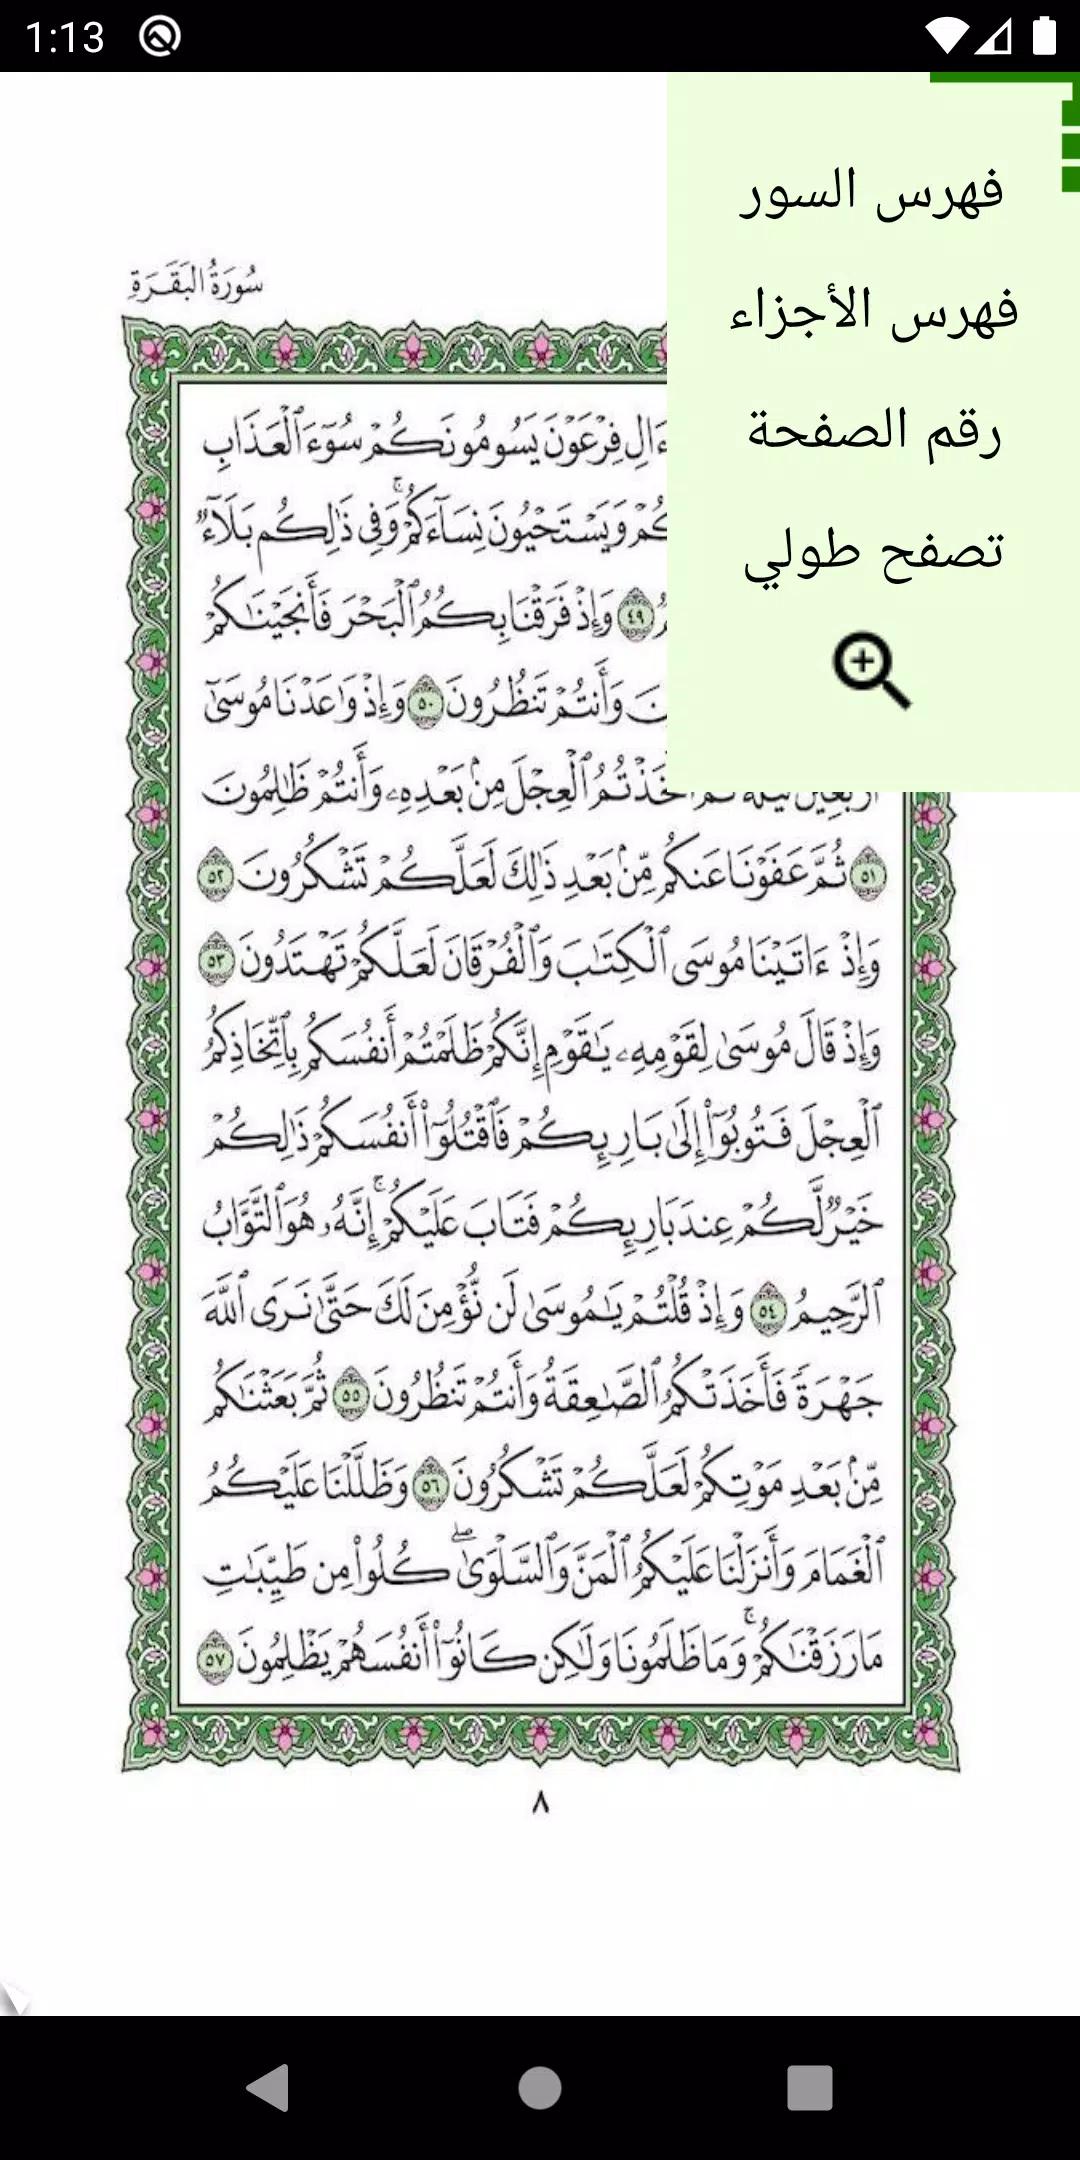 1:13
فهرس السور
فهرس الأجزاء
رقم الصفحة
تصفح طولي
سُورَةُ البَقَرَةِ
ءَالِ فِرْعَوْنَ يَسُومُونَكُمْ سُوٓءَ ٱلْعَذَابِ
كُمْ وَيَسْتَحْيُونَ نِسَآءَكُمْ ۚ وَفِى ذَٰلِكُم بَلَآءٌ
٤٩ وَإِذْ فَرَقْنَا بِكُمُ ٱلْبَحْرَ فَأَنجَيْنَٰكُمْ
وَأَنتُمْ تَنظُرُونَ ٥٠ وَإِذْ وَٰعَدْنَا مُوسَىٰٓ
ٱلْعِجْلَ مِنۢ بَعْدِهِۦ وَأَنتُمْ ظَٰلِمُونَ
٥١ ثُمَّ عَفَوْنَا عَنكُم مِّنۢ بَعْدِ ذَٰلِكَ لَعَلَّكُمْ تَشْكُرُونَ ٥٢
وَإِذْ ءَاتَيْنَا مُوسَى ٱلْكِتَٰبَ وَٱلْفُرْقَانَ لَعَلَّكُمْ تَهْتَدُونَ ٥٣
وَإِذْ قَالَ مُوسَىٰ لِقَوْمِهِۦ يَٰقَوْمِ إِنَّكُمْ ظَلَمْتُمْ أَنفُسَكُم بِٱتِّخَاذِكُمُ
ٱلْعِجْلَ فَتُوبُوٓا۟ إِلَىٰ بَارِئِكُمْ فَٱقْتُلُوٓا۟ أَنفُسَكُمْ ذَٰلِكُمْ
خَيْرٌ لَّكُمْ عِندَ بَارِئِكُمْ فَتَابَ عَلَيْكُمْ ۚ إِنَّهُۥ هُوَ ٱلتَّوَّابُ
ٱلرَّحِيمُ ٥٤ وَإِذْ قُلْتُمْ يَٰمُوسَىٰ لَن نُّؤْمِنَ لَكَ حَتَّىٰ نَرَى ٱللَّهَ
جَهْرَةً فَأَخَذَتْكُمُ ٱلصَّٰعِقَةُ وَأَنتُمْ تَنظُرُونَ ٥٥ ثُمَّ بَعَثْنَٰكُم
مِّنۢ بَعْدِ مَوْتِكُمْ لَعَلَّكُمْ تَشْكُرُونَ ٥٦ وَظَلَّلْنَا عَلَيْكُمُ
ٱلْغَمَامَ وَأَنزَلْنَا عَلَيْكُمُ ٱلْمَنَّ وَٱلسَّلْوَىٰ ۖ كُلُوا۟ مِن طَيِّبَٰتِ
مَا رَزَقْنَٰكُمْ ۚ وَمَا ظَلَمُونَا وَلَٰكِن كَانُوٓا۟ أَنفُسَهُمْ يَظْلِمُونَ ٥٧
٨